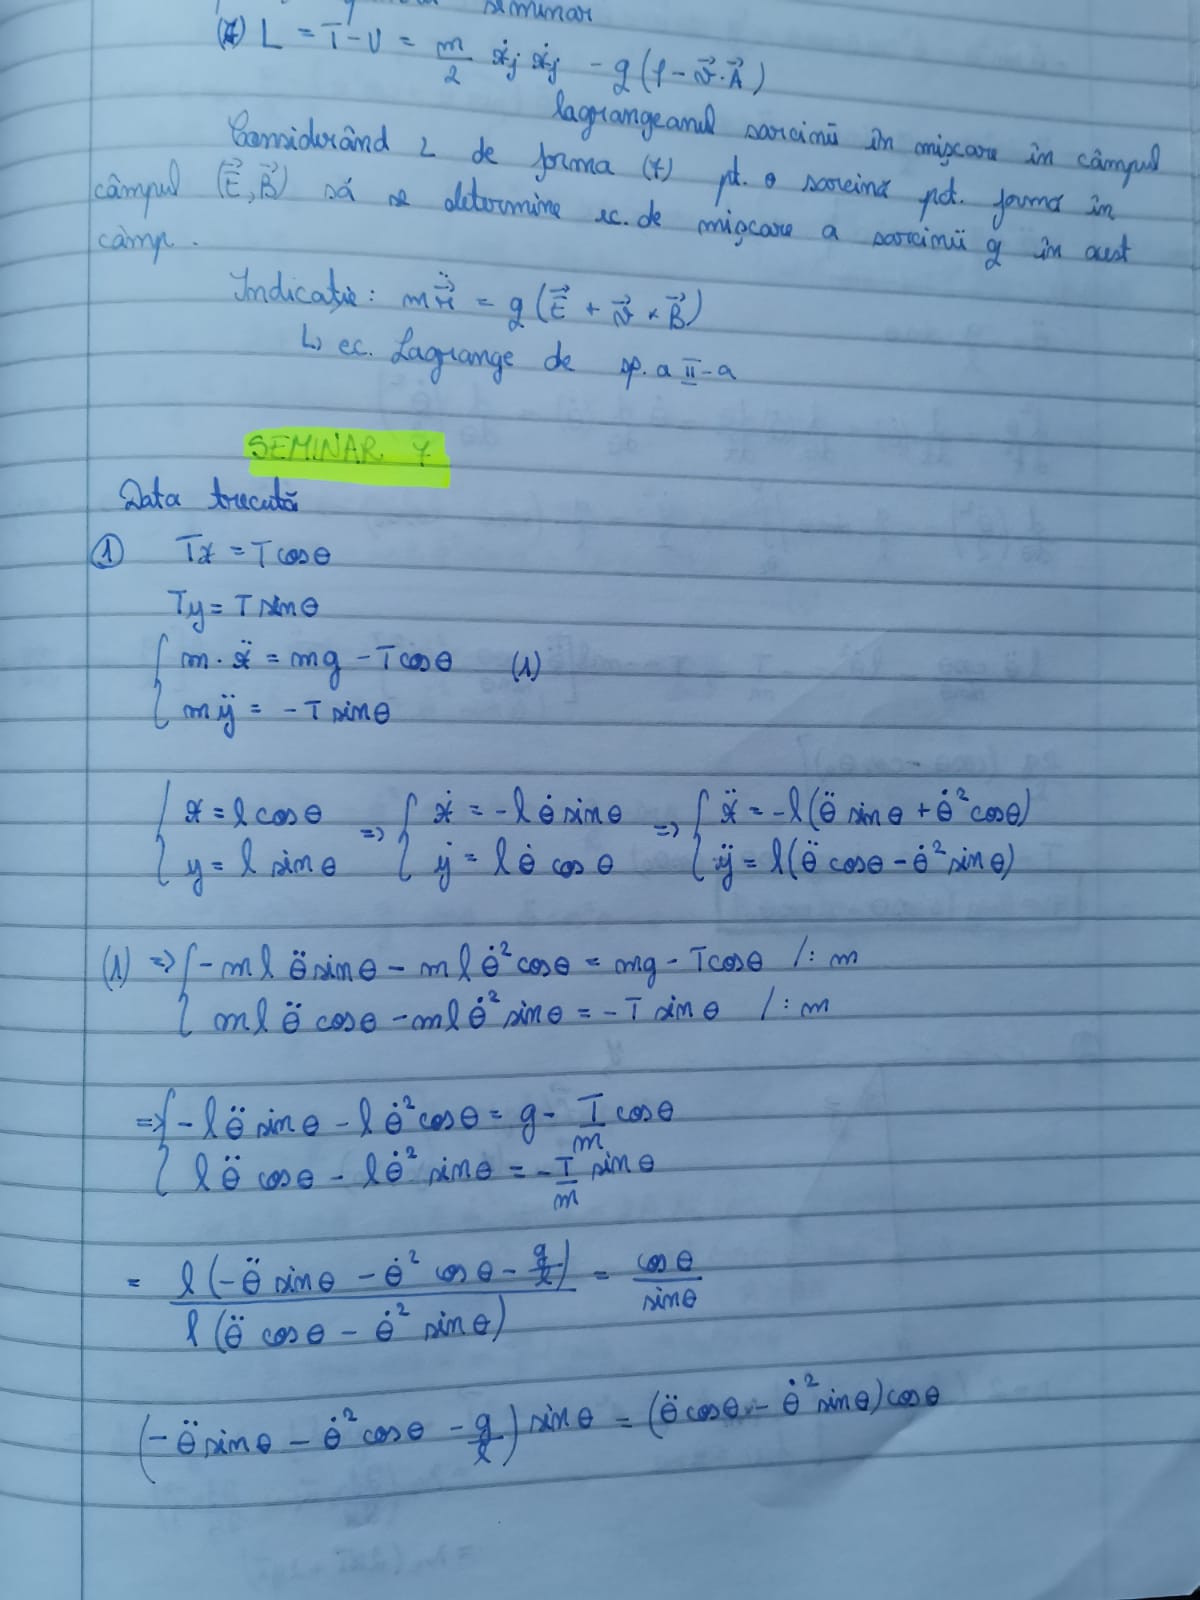 seminar
(7) L = T - U = m/2 ẋj ẋj - q(φ - v⃗·A⃗)
lagrangeanul sarcinii în mișcare în câmpul
Considerând L de forma (7) pt. o sarcină pct. forma în
câmpul (E⃗, B⃗) să se determine ec. de mișcare a sarcinii q în acest
câmp.
Indicație: m r⃗̈ = q(E⃗ + v⃗ × B⃗)
↳ ec. Lagrange de sp. a II-a
SEMINAR 7
Data trecută
① Tx = T cosθ
Ty = T sinθ
{ m·ẍ = mg - T cosθ (1)
{ mÿ = - T sinθ
{ x = l cosθ => { ẋ = -l θ̇ sinθ => { ẍ = -l(θ̈ sinθ + θ̇² cosθ)
{ y = l sinθ { ẏ = l θ̇ cosθ { ÿ = l(θ̈ cosθ - θ̇² sinθ)
(1) => { - m l θ̈ sinθ - m l θ̇² cosθ = mg - T cosθ /: m
{ m l θ̈ cosθ - m l θ̇² sinθ = - T sinθ /: m
=> { - l θ̈ sinθ - l θ̇² cosθ = g - T/m cosθ
{ l θ̈ cosθ - l θ̇² sinθ = - T/m sinθ
= l(-θ̈ sinθ - θ̇² cosθ - g/l) / l(θ̈ cosθ - θ̇² sinθ) = cosθ/sinθ
(-θ̈ sinθ - θ̇² cosθ - g/l) sinθ = (θ̈ cosθ - θ̇² sinθ) cosθ